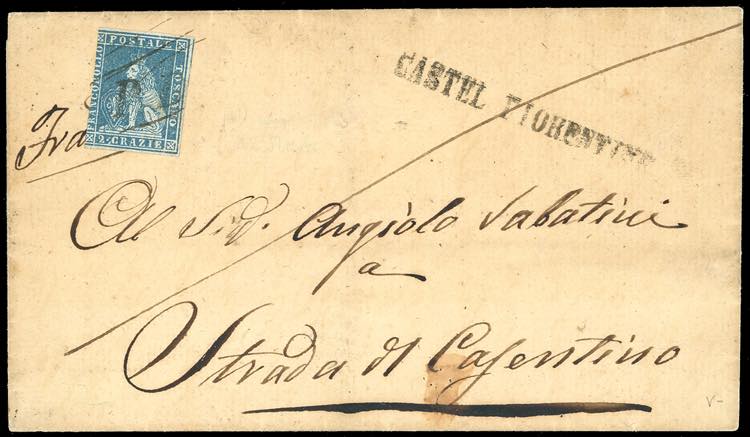 FRANCOBOLLO POSTALE TOSCANO
2 GRAZIE
P
CASTEL FIORENTINO
Fra
Al Sig. Angiolo Sabatini
a
Strada di Casentino